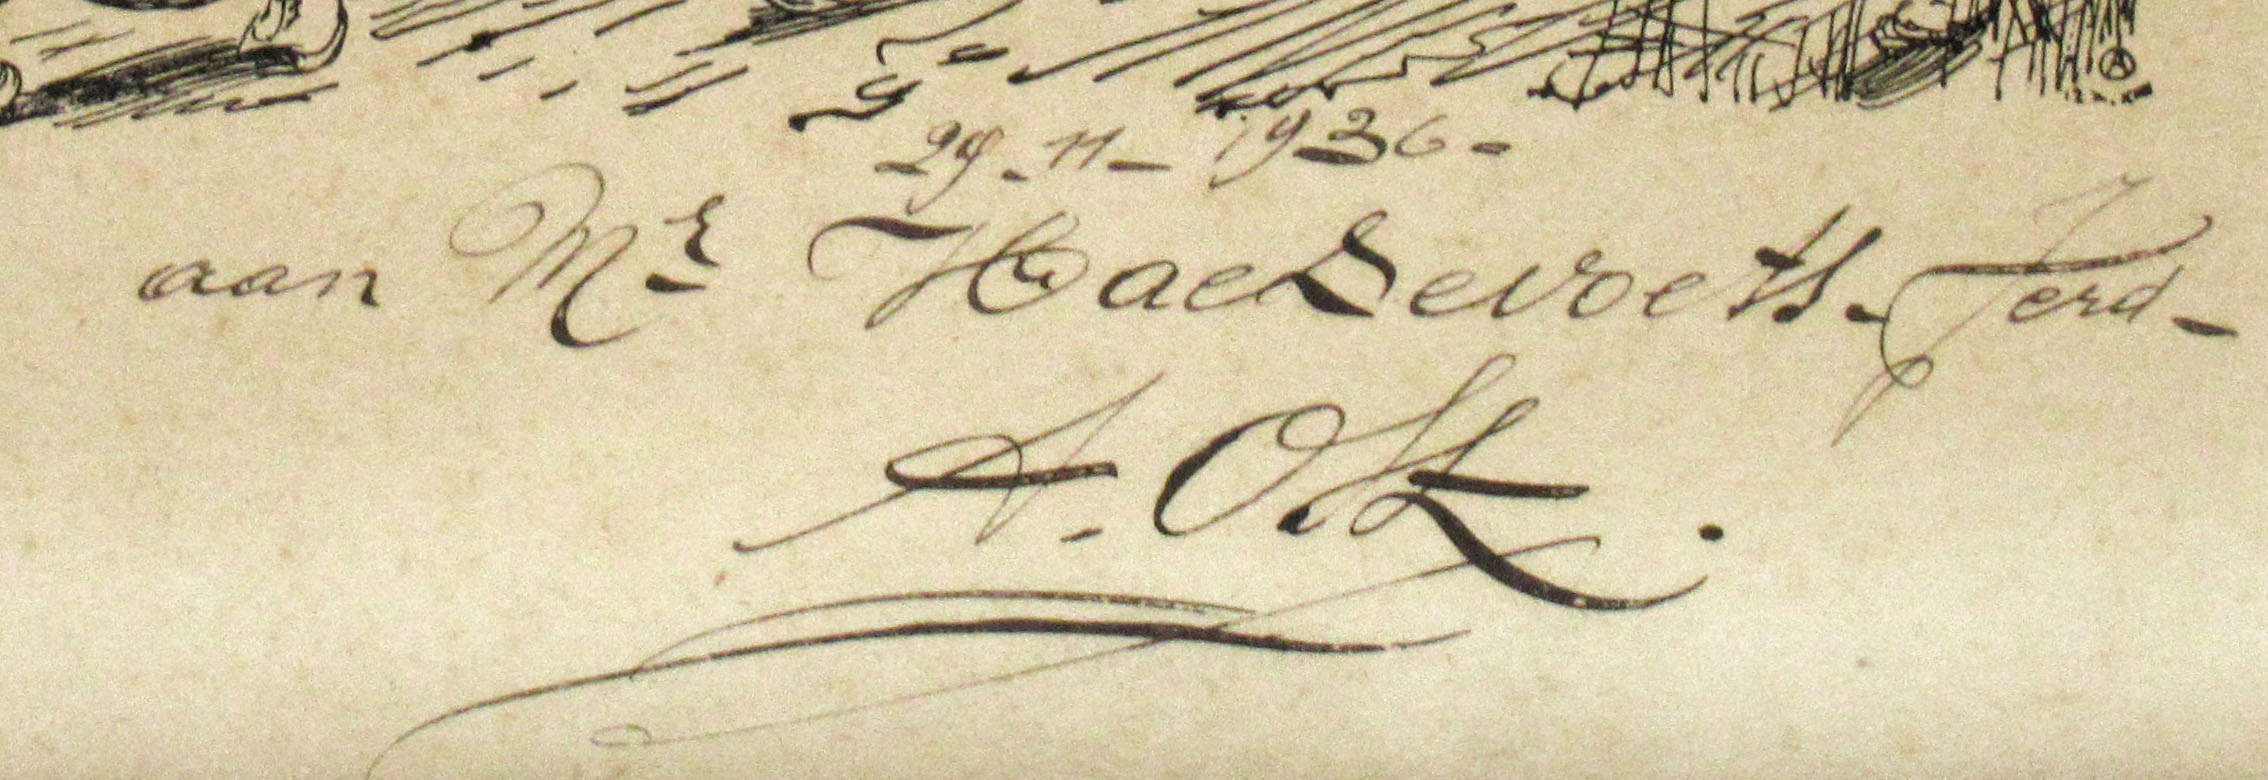 29-11-1936-
aan Mr Haesevoets. Ferd-
A. Ost.